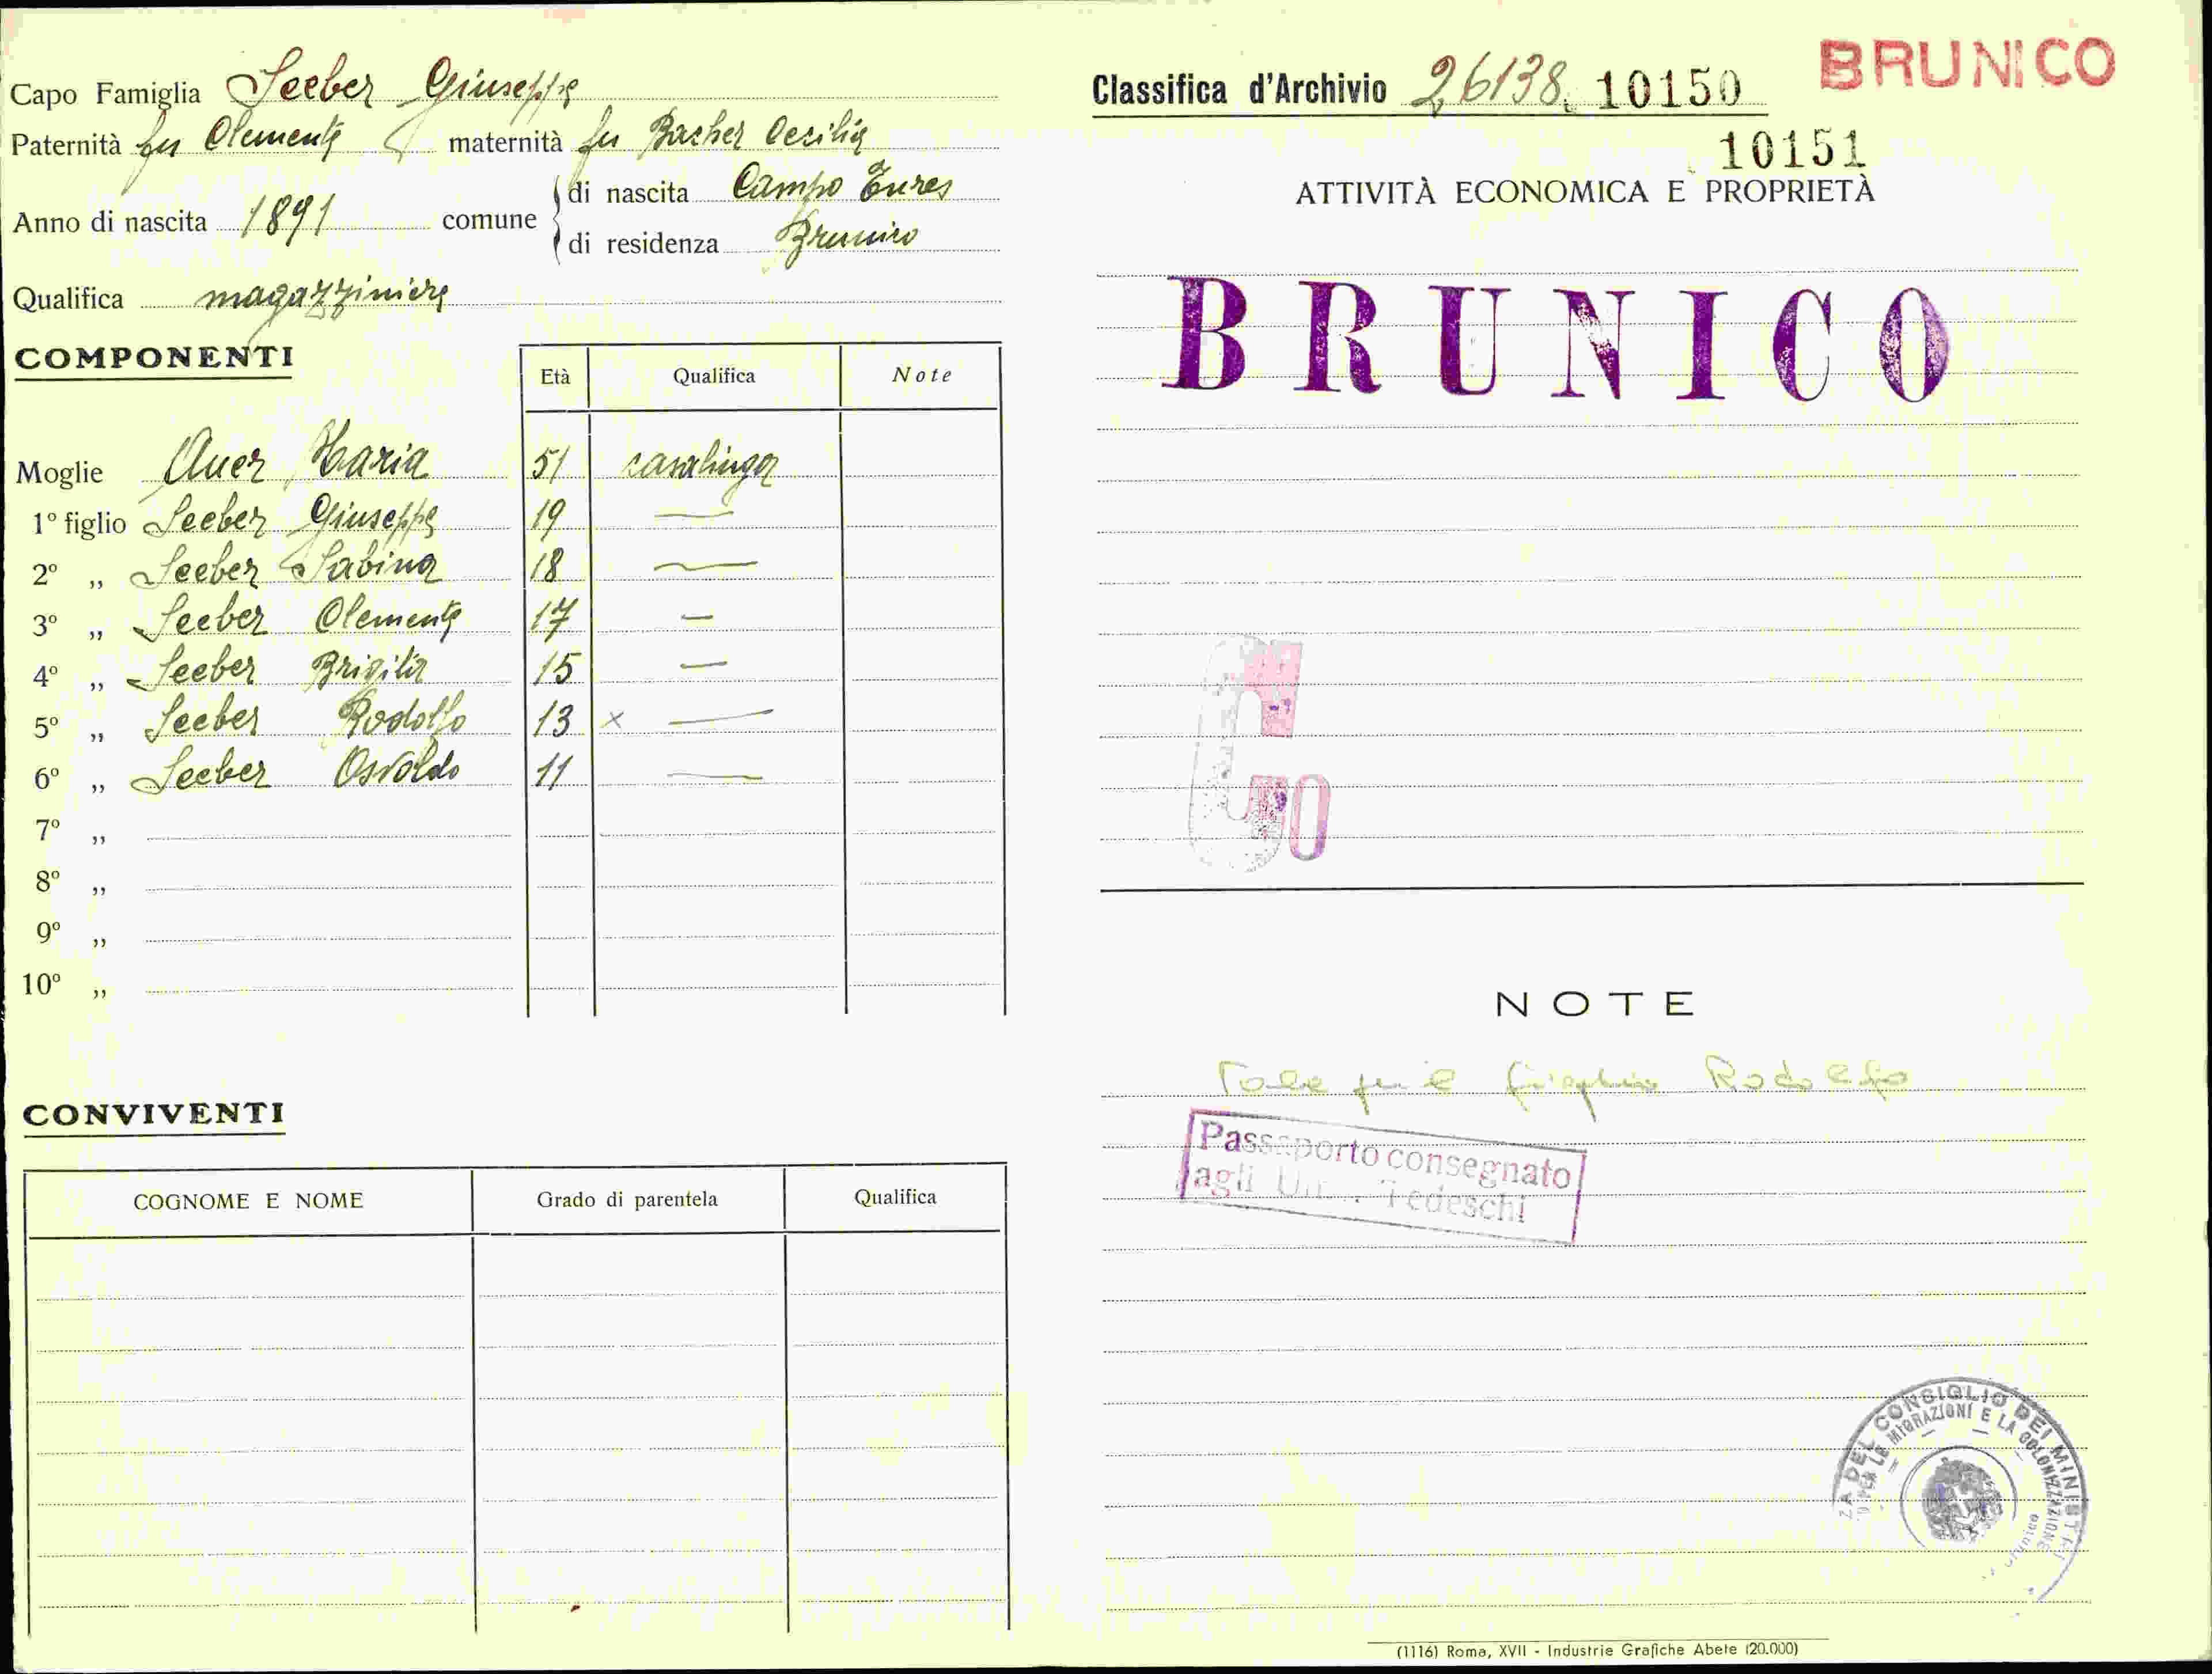 Capo Famiglia Seeber Giuseppe
Paternità fu Clemente maternità fu Bacher Cecilia
Anno di nascita 1891 comune di nascita Campo Tures
di residenza Brunico
Qualifica magazziniere
COMPONENTI
Età Qualifica Note
Moglie Auer Maria 51 casalinga
1º figlio Seeber Giuseppe 19 —
2º „ Seeber Sabina 18 —
3º „ Seeber Clemente 17 —
4º „ Seeber Brigita 15 —
5º „ Seeber Rodolfo 13 x —
6º „ Seeber Osvaldo 11 —
7º „
8º „
9º „
10º „
CONVIVENTI
COGNOME E NOME Grado di parentela Qualifica
Classifica d'Archivio 26138. 10150
BRUNICO
10151
ATTIVITÀ ECONOMICA E PROPRIETÀ
BRUNICO
NOTE
Vale per il figlio Rodolfo
Passaporto consegnato
agli Uff. Tedeschi
ZA DEL CONSIGLIO DEI MINISTRI
PER LE MIGRAZIONI E LA COLONIZZAZIONE
Brunico
(1116) Roma, XVII - Industrie Grafiche Abete (20.000)